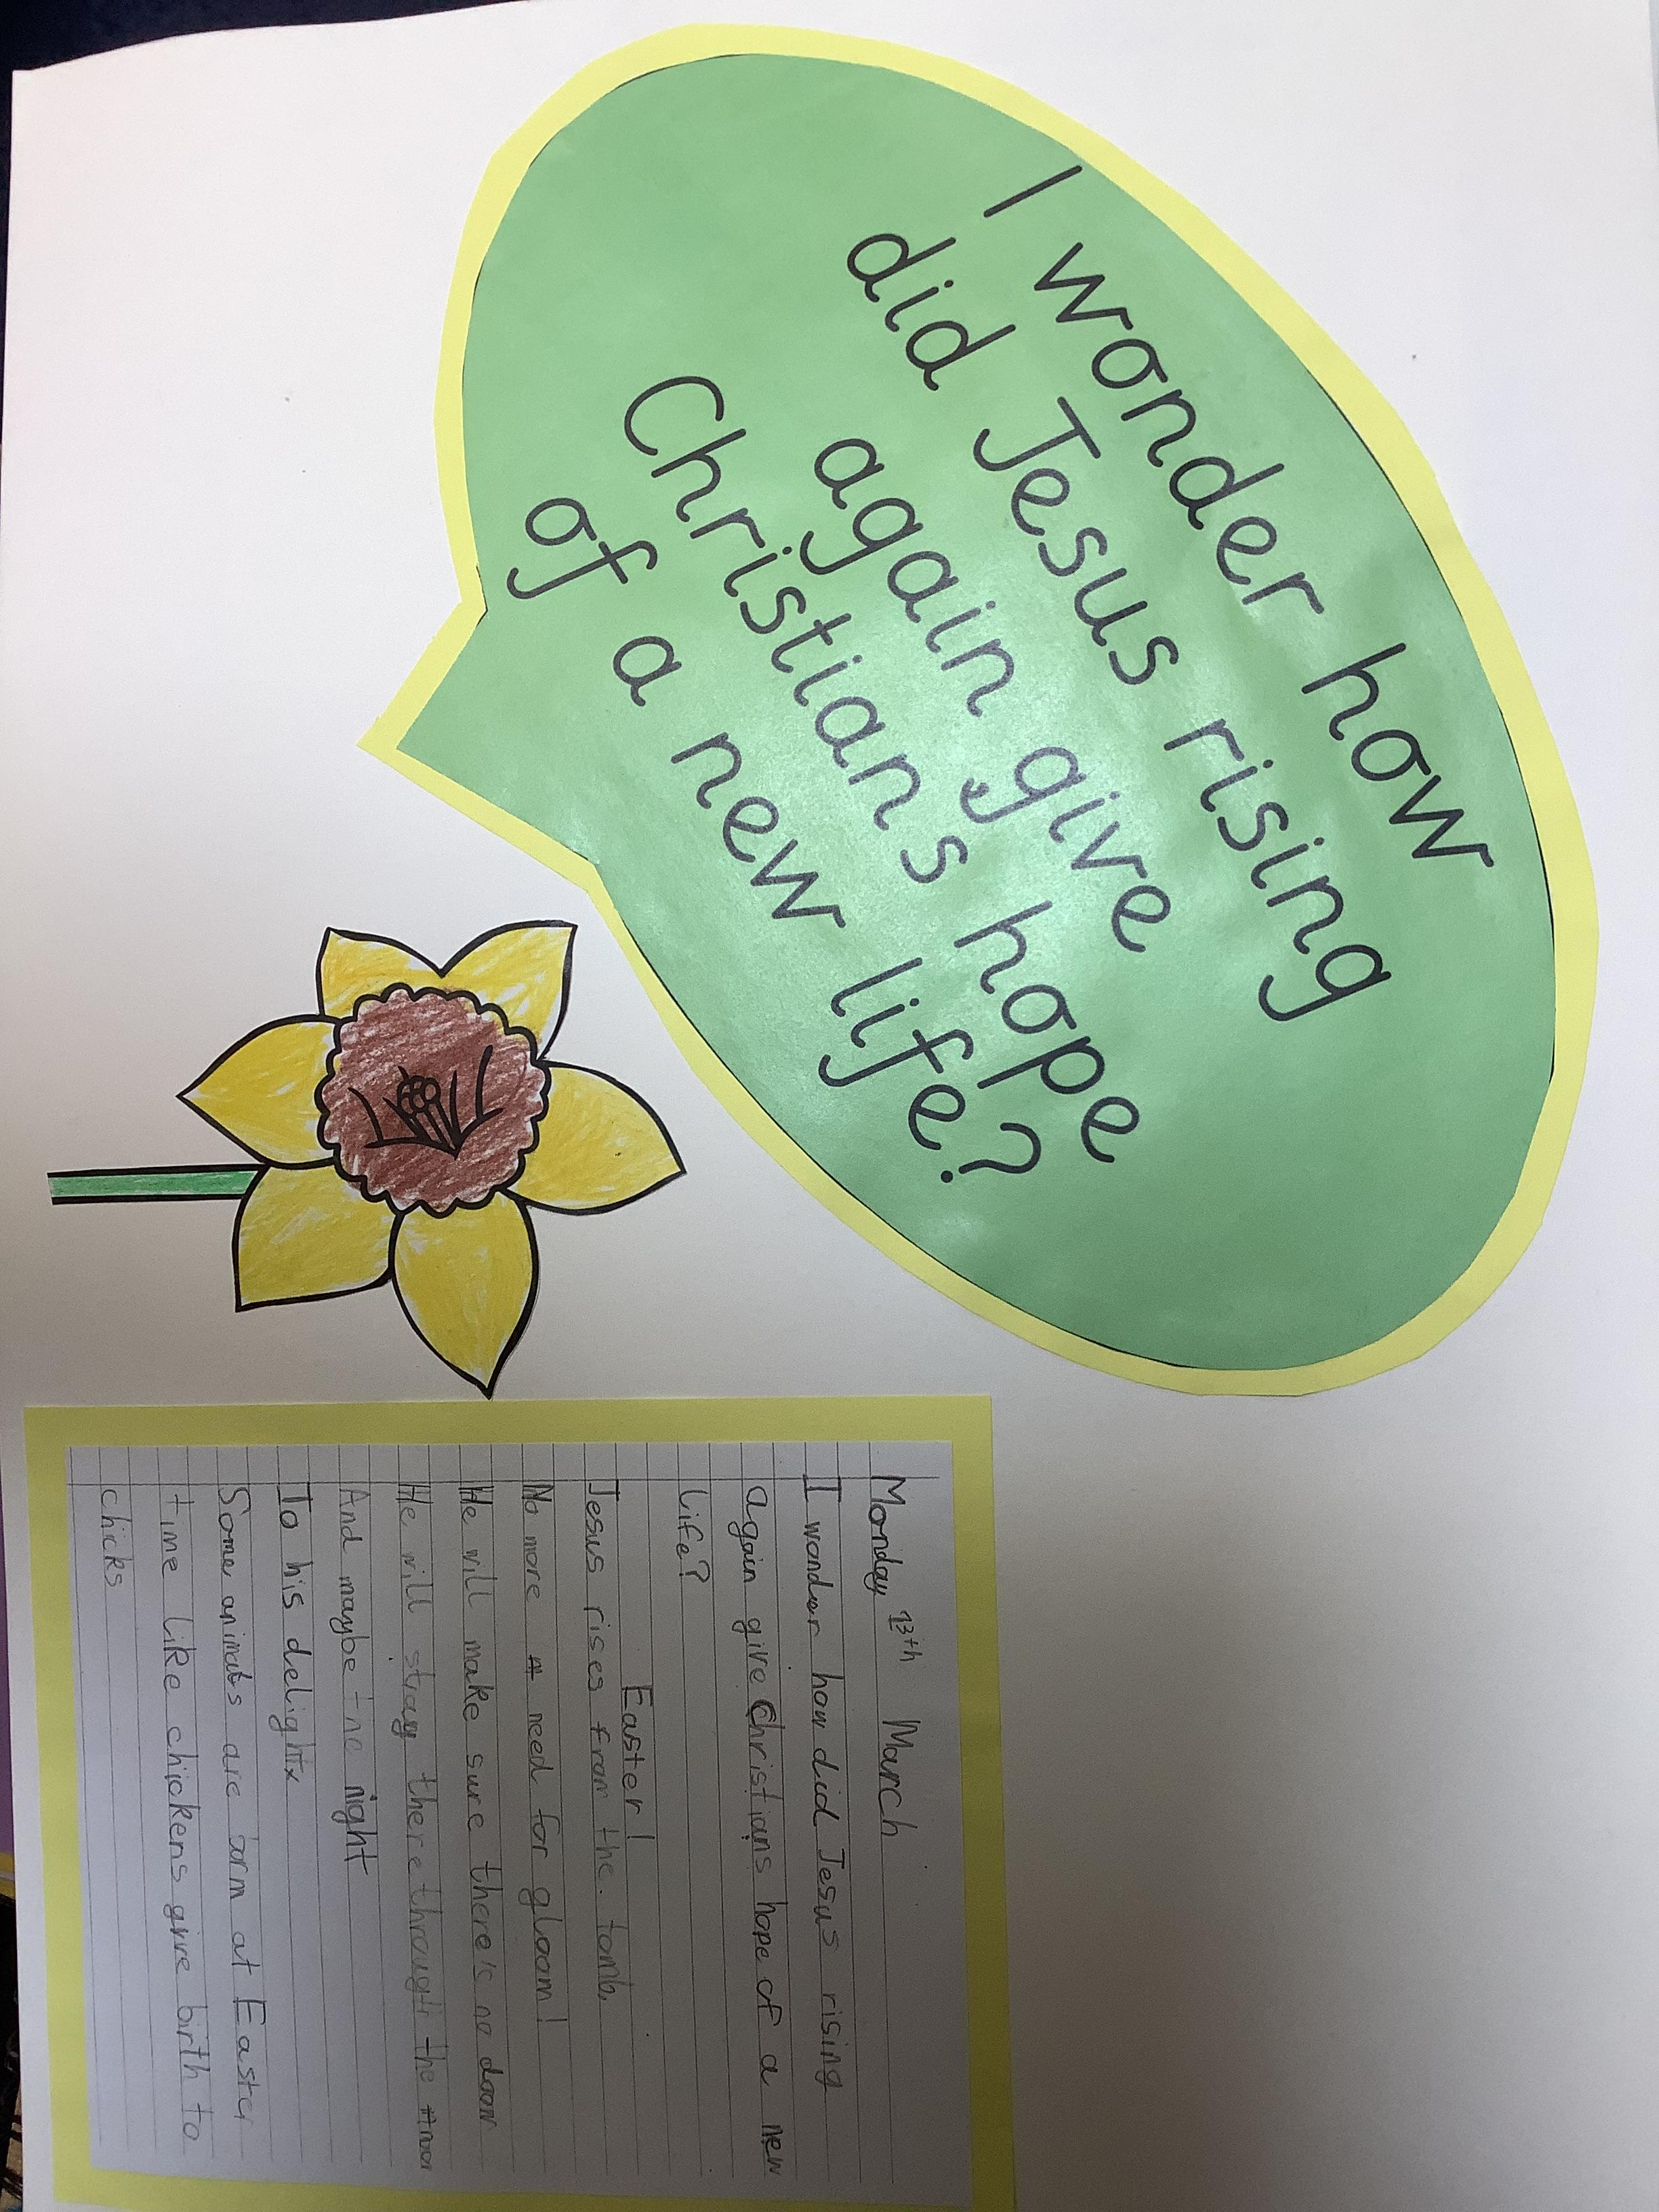 I wonder how
did Jesus rising
again give
Christians hope
of a new life?
Monday 13th March
I wonder how did Jesus rising
again give Christians hope of a new
life?
Easter!
Jesus rises from the. tomb.
No more need for gloom!
He will make sure there's no doom
He will stay there through the
And maybe the night
To his delight
Some animals are born at Easter
time like chickens give birth to
chicks